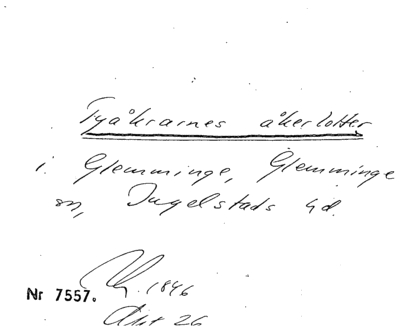 Fyåkrarnes åkerlotter
i Glemminge, Glemminge
sn, Ingelstads hd.
1846
Nr 7557.
Akt 26